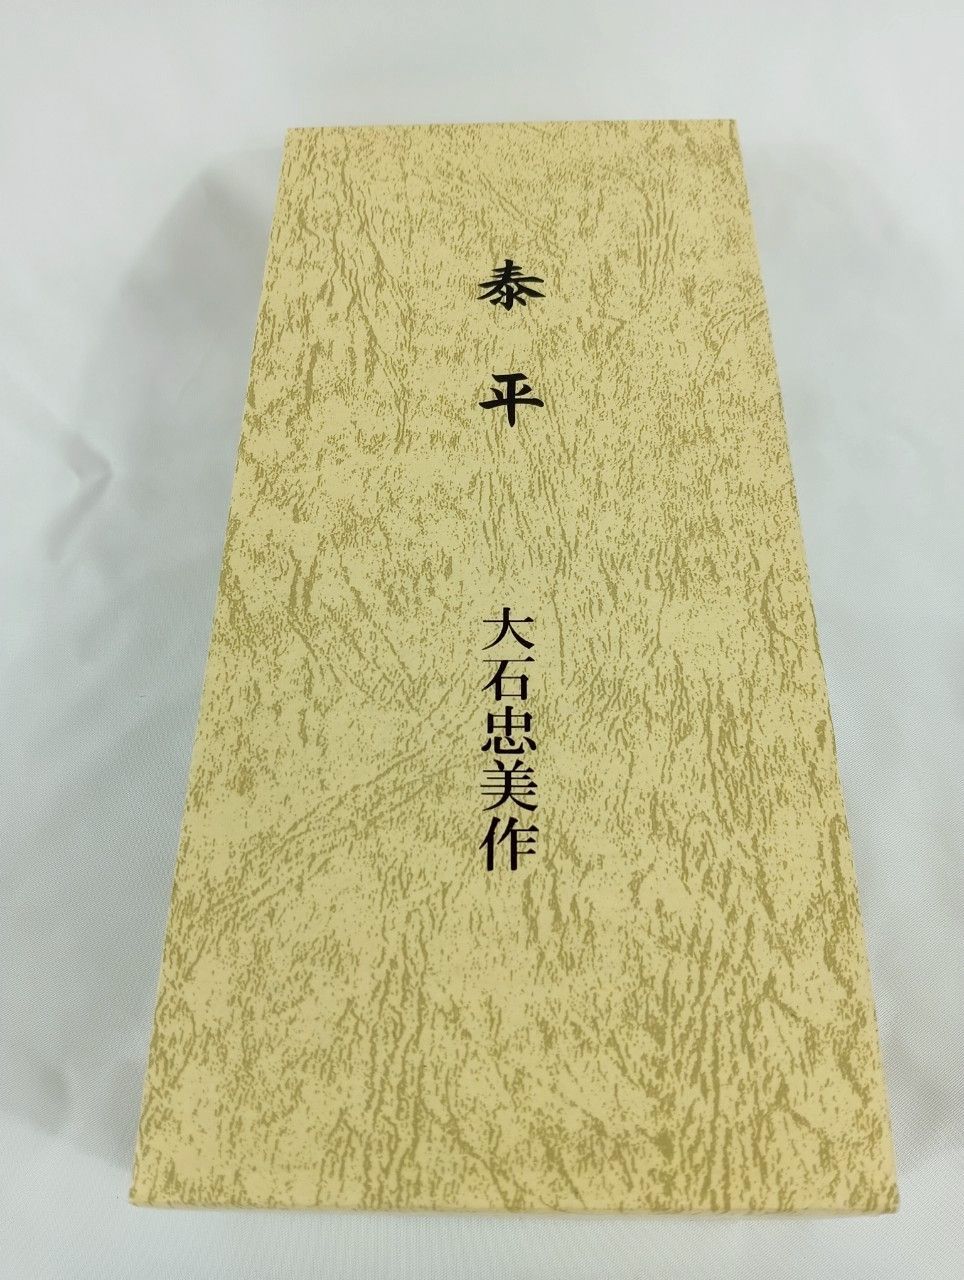 泰平
大石忠美作